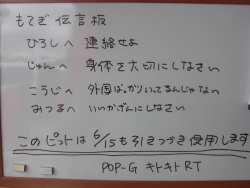 もてぎ 伝言板
ひろしへ 連絡せよ
じゅんへ 身体を大切にしなさい
こうじへ 外国ばっかりいってるんじゃない
みつるへ いいかげんにしなさい
このピットは 6/15も引きつづき使用します
POP-G キトキトRT